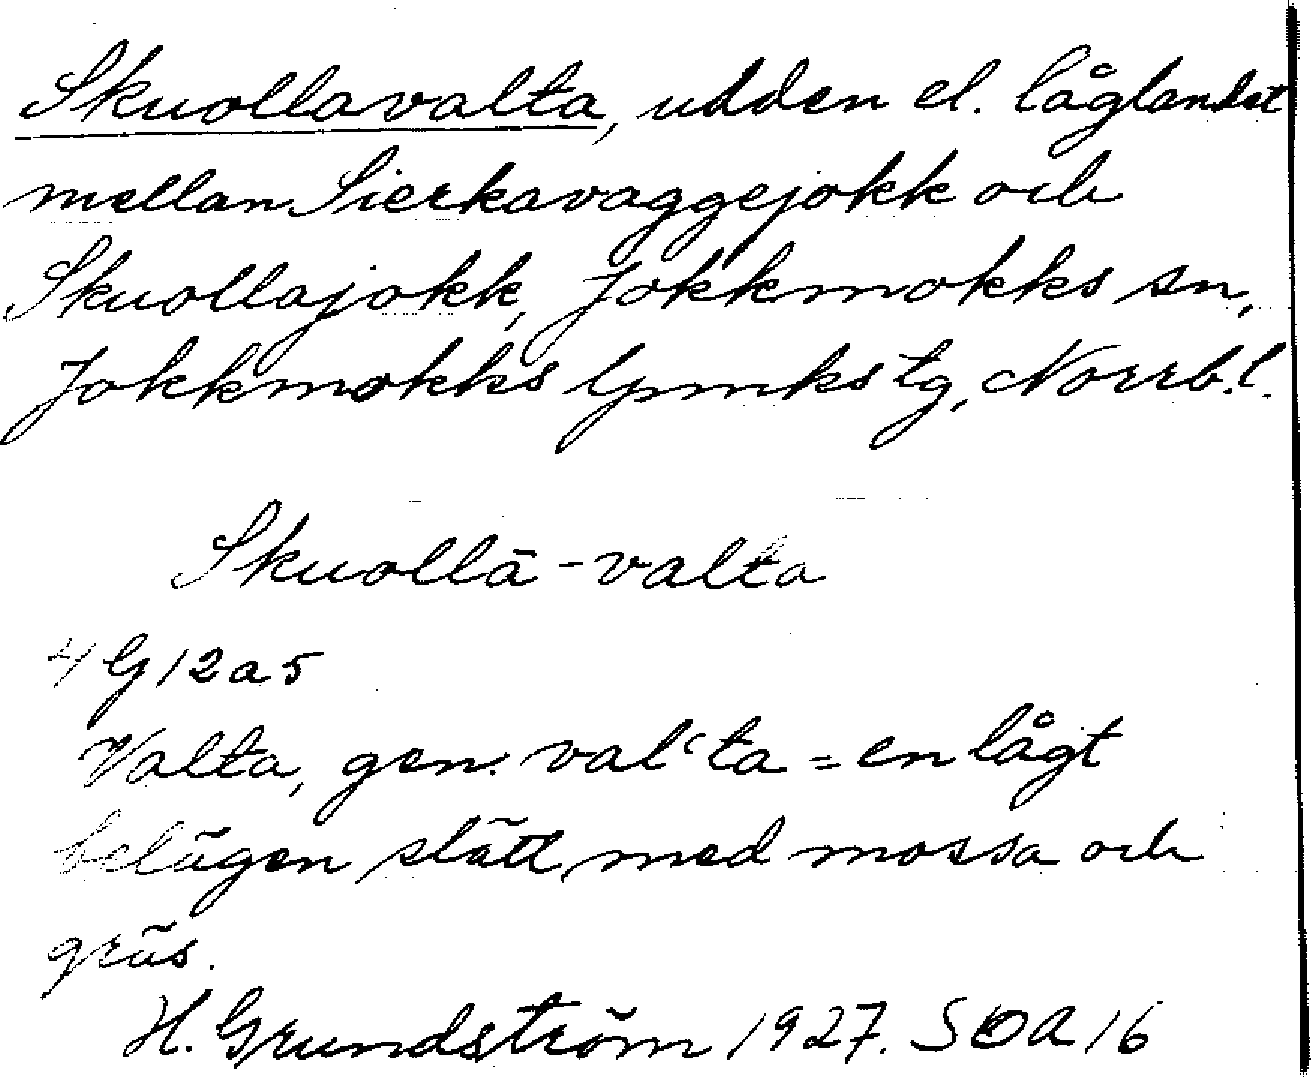 Skuollavalta, udden el. låglandet
mellan Sierkavaggejokk och
Skuollajokk, Jokkmokks sn,
Jokkmokks lpmks tg, Norrb. l.
Skuollā-valta
4 G 12 a 5
Valta, gen. val‘ta = en lågt
belägen slätt med mossa och
gräs.
H. Grundström 1927. SOA 16